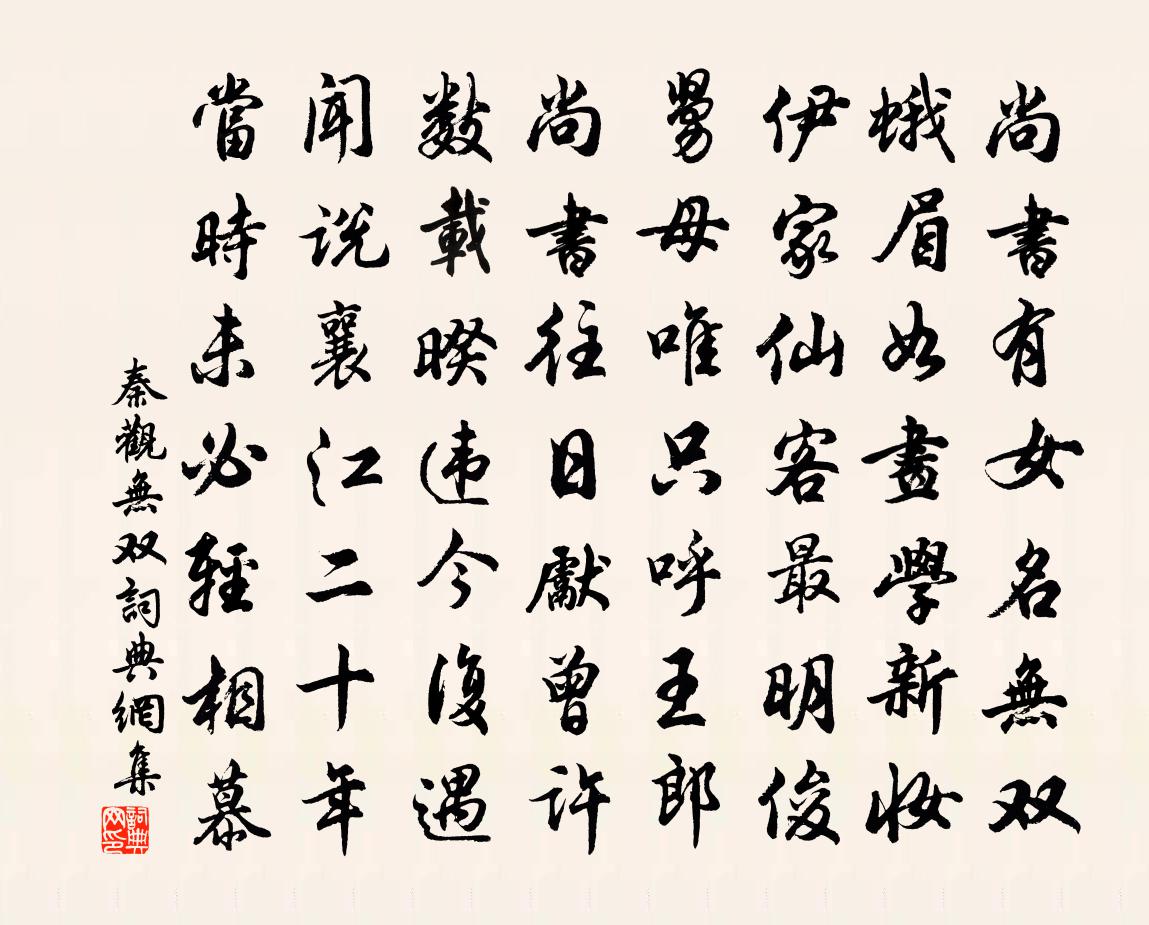 尚書有女名無双
蛾眉如畫學新妝
伊家仙客最明俊
舅母唯只呼王郎
尚書往日獻曾許
數載暌违今復遇
闻説襄江二十年
當時未必輕相慕
秦觀無双詞典網集
詞典網印